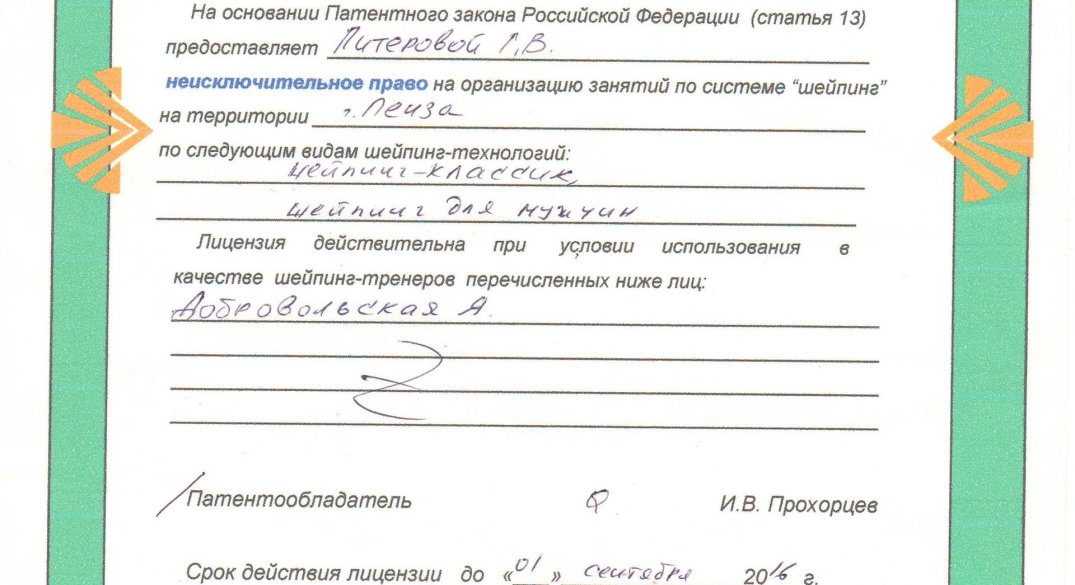 На основании Патентного закона Российской Федерации (статья 13)
предоставляет Питеровой Г.В.
неисключительное право на организацию занятий по системе “шейпинг”
на территории г. Пенза
по следующим видам шейпинг-технологий:
шейпинг-классик,
шейпинг для мужчин
Лицензия действительна при условии использования в
качестве шейпинг-тренеров перечисленных ниже лиц:
Добровольская А.
Патентообладатель И.В. Прохорцев
Срок действия лицензии до «01» сентября 2016 г.